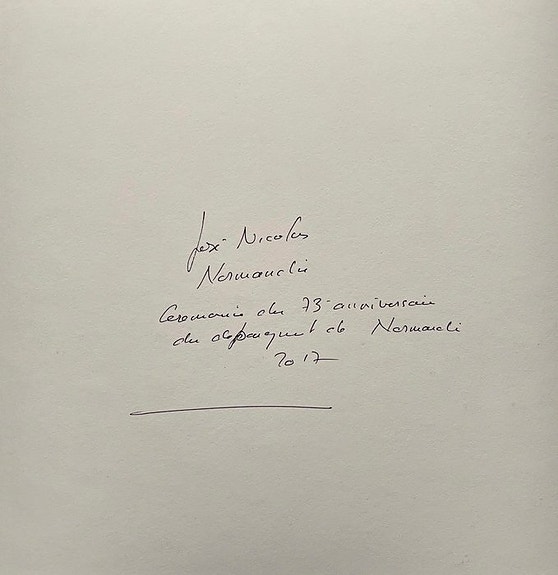 José Nicolas
Normandie
Ceremonie du 73e anniversaire
du débarquement de Normandie
2017